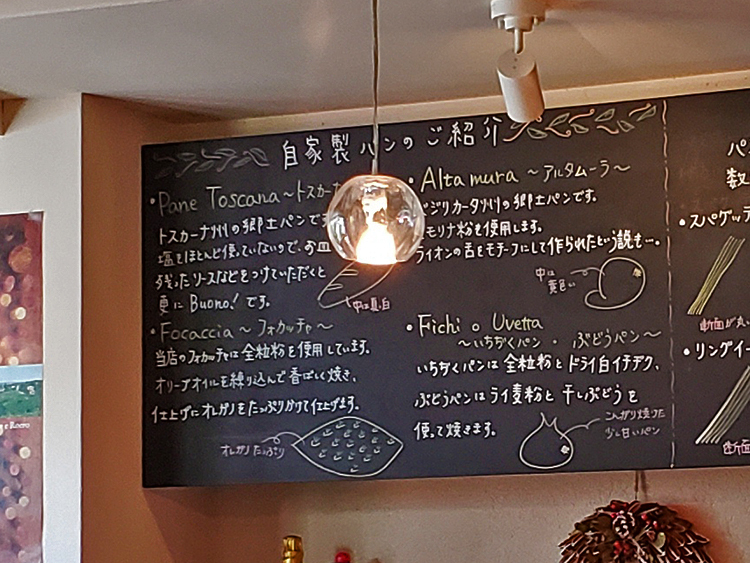 自家製パンのご紹介
・Pane Toscana ～トスカーナ
トスカーナ州の郷土パンです
塩をほとんど使っていないので、お皿
残ったソースなどをつけていただくと
更に Buono! です。
中は真白
・Focaccia ～フォカッチャ～
当店のフォカッチャは全粒粉を使用しています。
オリーブオイルを練り込んで香ばしく焼き、
仕上げにオレガノをたっぷりかけて仕上げます。
オレガノたっぷり
・Altamura ～アルタムーラ～
バジリカータ州の郷土パンです。
モリナ粉を使用します。
ライオンの舌をモチーフにして作られたという説も…。
中は
黄色い
・Fichi o Uvetta
～いちぢくパン・ぶどうパン～
いちぢくパンは全粒粉とドライ白イチヂク、
ぶどうパンはライ麦粉と干しぶどうを
使って焼きます。
こんがり焼けた
少し甘いパン
パ
数
・スパゲッテ
断面が丸
・リングイー
断面
e Roero